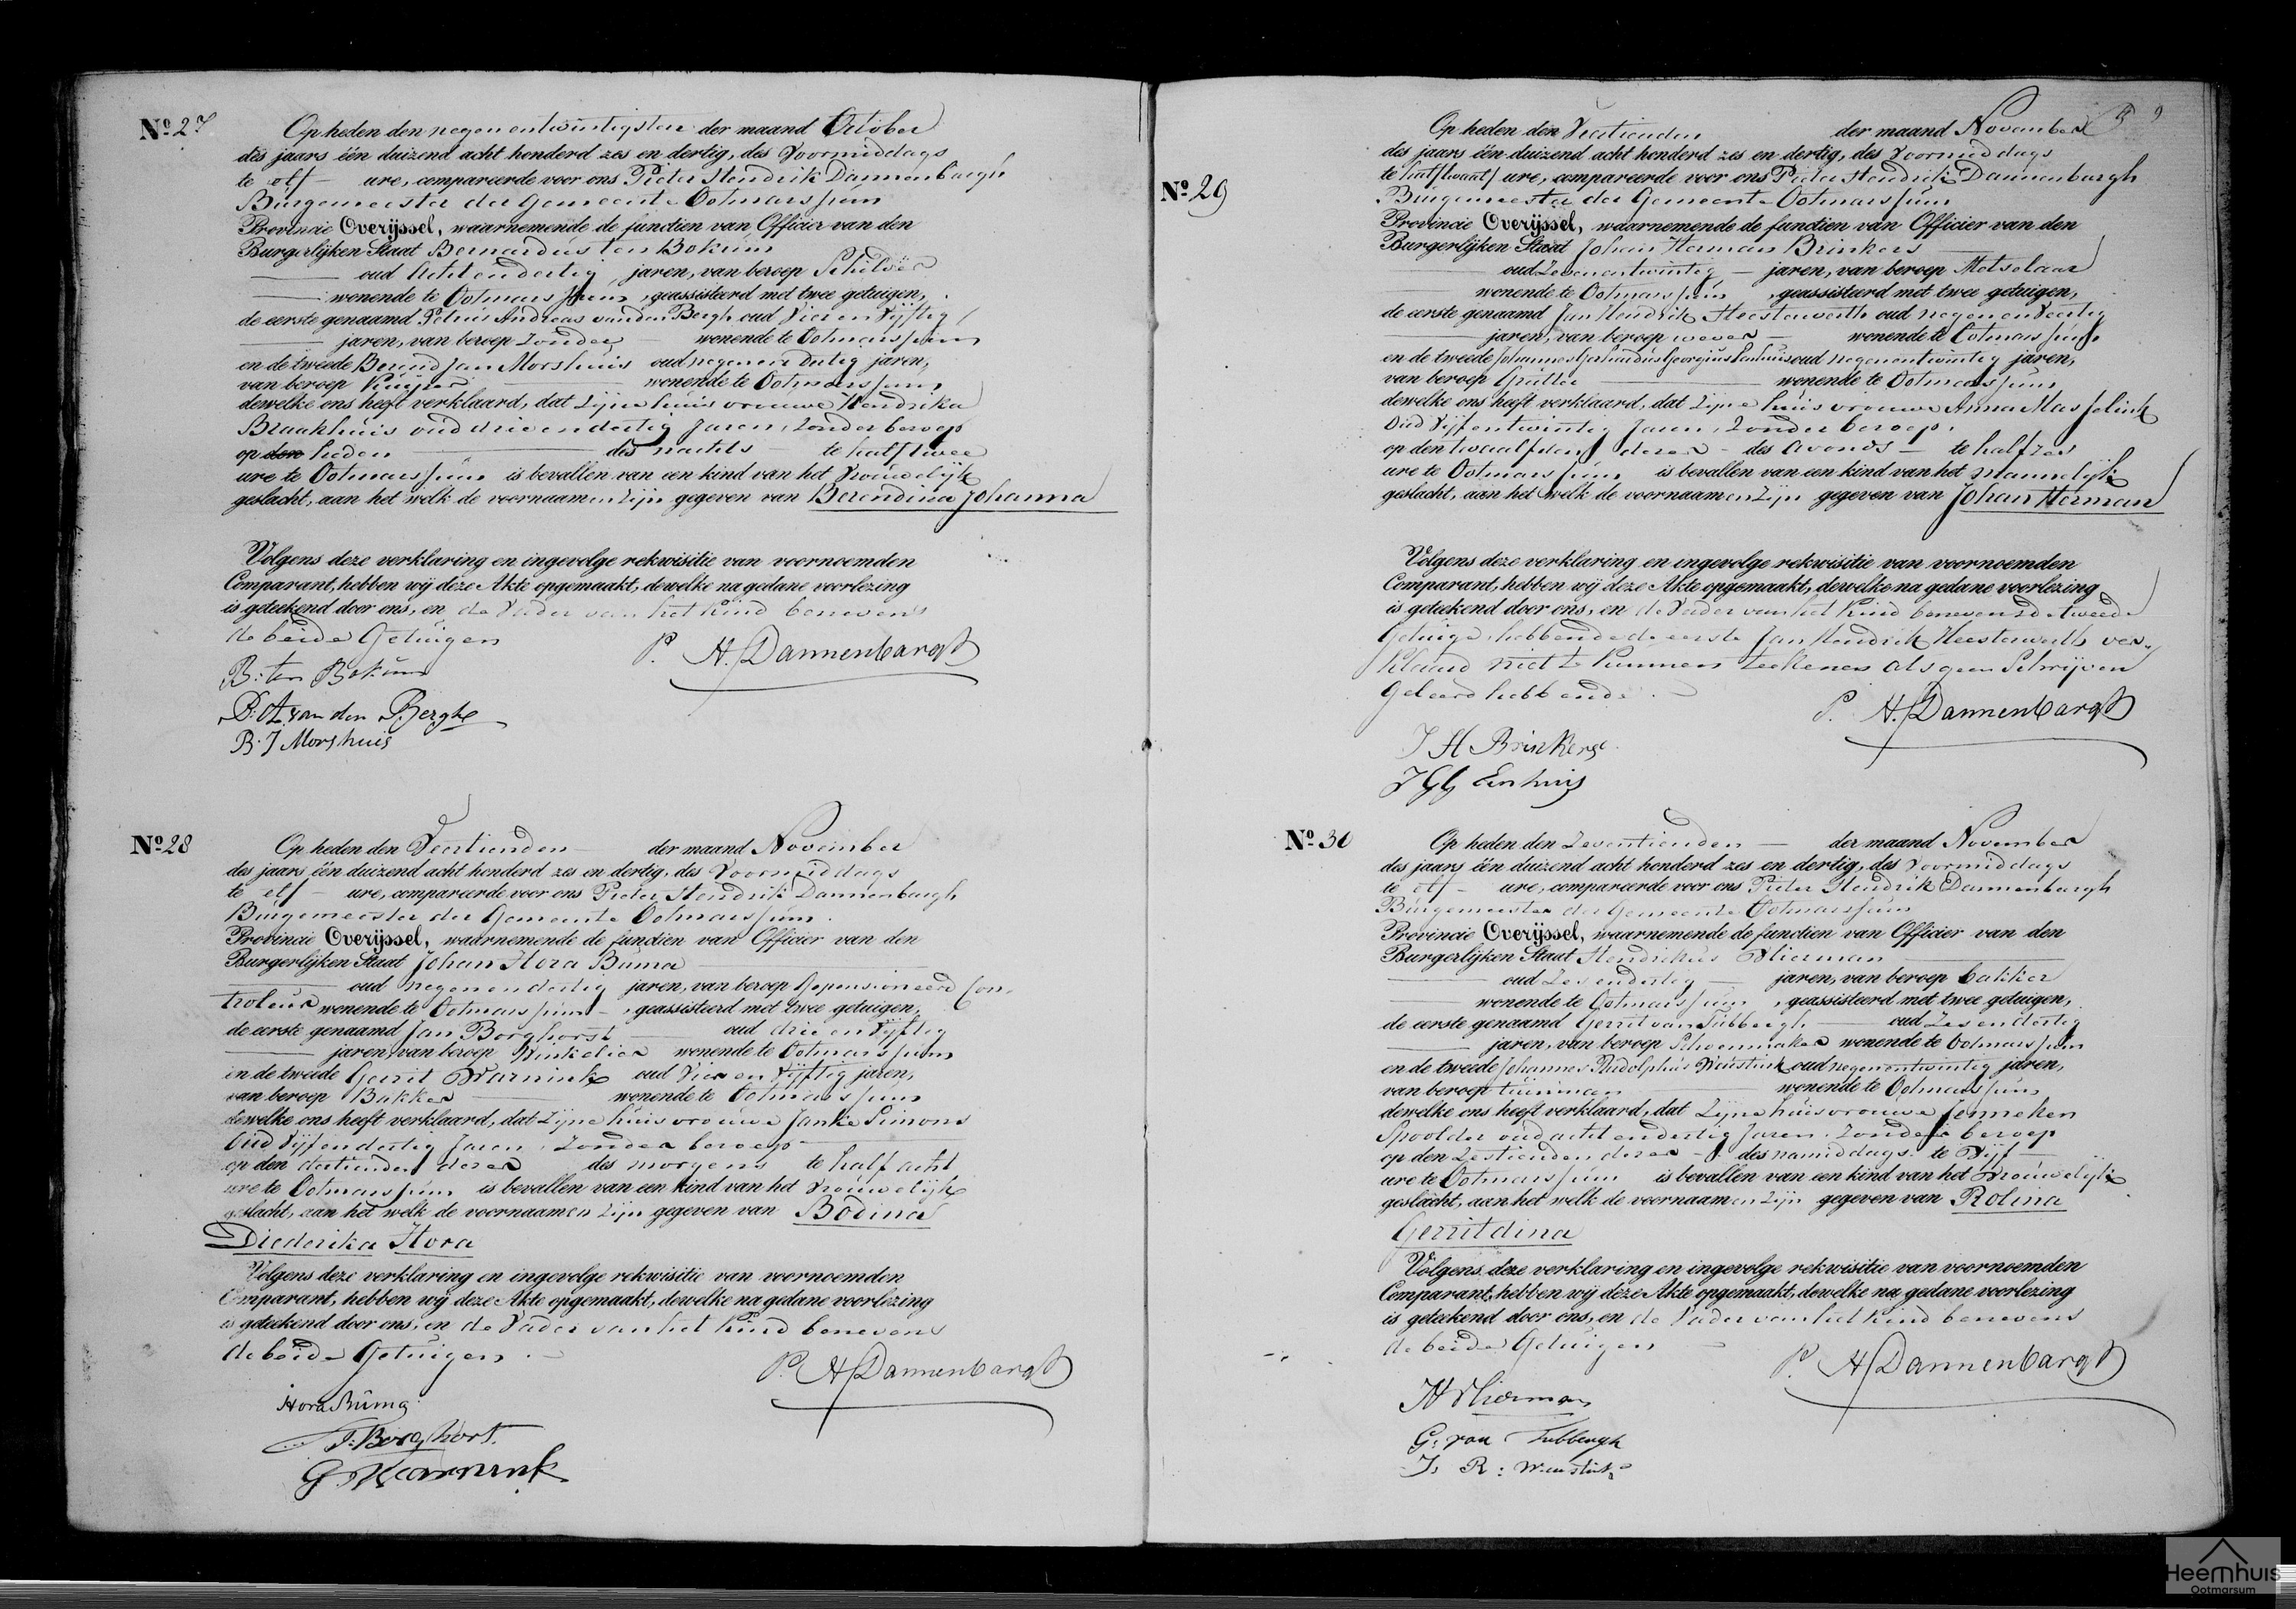 No 27
Op heden den negen entwintigsten der maand October
des jaars één duizend acht honderd zes en dertig, des Voormiddags
te elf ure, compareerde voor ons Pieter Hendrik Dannenbargh
Burgemeester der Gemeente Ootmarssum
Provincie Overijssel, waarnemende de functien van Officier van den
Burgerlijken Staat Bernardus ten Bokum
oud Acht endertig jaren, van beroep Schilder
wonende te Ootmarssum, geassisteerd met twee getuigen,
de eerste genaamd Petrus Andreas van den Bergh oud Vier en Vijftig
jaren, van beroep Zonder wonende te Ootmarssum
en de tweede Berend Jan Morshuis oud negenendertig jaren,
van beroep Kuiper wonende te Ootmarssum
dewelke ons heeft verklaard, dat Zijne huisvrouwe Hendrika
Braakhuis oud drie endertig Jaren, Zonder beroep
op den heden des nachts te half twee
ure te Ootmarssum is bevallen van een kind van het Vrouwelijk
geslacht, aan het welk de voornaamen Zijn gegeven van Berendina Johanna
Volgens deze verklaring en ingevolge rekwisitie van voornoemden
Comparant, hebben wij deze Akte opgemaakt, dewelke na gedane voorlezing
is geteekend door ons, en de Vader van het Kind benevens
de beide Getuigen
P. H. Dannenbargh
B: ten Bokum
P: A. van den Bergh
B. J Morshuis
No 28
Op heden den Veertienden der maand November
des jaars één duizend acht honderd zes en dertig, des Voormiddags
te elf ure, compareerde voor ons Pieter Hendrik Dannenbargh
Burgemeester der Gemeente Ootmarssum
Provincie Overijssel, waarnemende de functien van Officier van den
Burgerlijken Staat Johan Hora Buma
oud negen endertig jaren, van beroep Gepensioneerd Con-
troleur wonende te Ootmarssum, geassisteerd met twee getuigen,
de eerste genaamd Jan Borghorst oud drie en Vijftig
jaren, van beroep Winkelier wonende te Ootmarssum
en de tweede Gerrit Warnink oud Vier en Vijftig jaren,
van beroep Bakker wonende te Ootmarssum
dewelke ons heeft verklaard, dat Zijne huisvrouwe Janke Simons
Oud Vijf endertig Jaren, Zonder beroep
op den dertienden dezer des morgens te half acht
ure te Ootmarssum is bevallen van een kind van het Vrouwelijk
geslacht, aan het welk de voornaamen Zijn gegeven van Bodina
Diederika Hora
Volgens deze verklaring en ingevolge rekwisitie van voornoemden
Comparant, hebben wij deze Akte opgemaakt, dewelke na gedane voorlezing
is geteekend door ons, en de Vader van het Kind benevens
de beide Getuigen
P. H. Dannenbargh
Hora Buma
J: Borghorst.
G. Warnink
No 29
Op heden den Veertienden der maand November
des jaars één duizend acht honderd zes en dertig, des Voormiddags
te half twaalf ure, compareerde voor ons Pieter Hendrik Dannenburgh
Burgemeester der Gemeente Ootmarssum
Provincie Overijssel, waarnemende de functien van Officier van den
Burgerlijken Staat Johan Herman Brinkers
oud Zevenentwintig jaren, van beroep Metselaar
wonende te Ootmarssum, geassisteerd met twee getuigen,
de eerste genaamd Jan Hendrik Heesterwerth oud negenenveertig
jaren, van beroep wever wonende te Ootmarssum
en de tweede Johannes Gerhardus Georgius oud negenentwintig jaren,
van beroep wonende te Ootmarssum
dewelke ons heeft verklaard, dat Zijne huisvrouwe Anna Masselink
Oud Vijfentwintig Jaren, Zonder beroep.
op den twaalfden dezer des Avonds te half zes
ure te Ootmarssum is bevallen van een kind van het mannelijk
geslacht, aan het welk de voornaamen Zijn gegeven van Johan Herman
Volgens deze verklaring en ingevolge rekwisitie van voornoemden
Comparant, hebben wij deze Akte opgemaakt, dewelke na gedane voorlezing
is geteekend door ons, en de Vader van het Kind benevens de tweede
Getuige, hebbende de eerste Jan Hendrik Heesterwerth ver-
klaard niet te kunnen teekenen als geen Schrijven
Geleerd hebbende.
P. H. Dannenbargh
J H Brinkers
J G G Enhuis
No 30
Op heden den Zeventienden der maand November
des jaars één duizend acht honderd zes en dertig, des Voormiddags
te elf ure, compareerde voor ons Pieter Hendrik Dannenbargh
Burgemeester der Gemeente Ootmarssum
Provincie Overijssel, waarnemende de functien van Officier van den
Burgerlijken Staat Hendrikus Vlierman
oud Zesendertig jaren, van beroep bakker
wonende te Ootmarssum, geassisteerd met twee getuigen,
de eerste genaamd Gerrit van Tubbergh oud Zesendertig
jaren, van beroep Schoenmaker wonende te Ootmarssum
en de tweede Johannes Rudolphus Weustink oud negenentwintig jaren,
van beroep tuinman wonende te Ootmarssum
dewelke ons heeft verklaard, dat Zijne huisvrouwe Jenneken
Spoolder oud acht endertig Jaren, Zonder beroep
op den Zestienden dezer des namiddags te Vijf
ure te Ootmarssum is bevallen van een kind van het Vrouwelijk
geslacht, aan het welk de voornaamen Zijn gegeven van Rolina
Gerritdina
Volgens deze verklaring en ingevolge rekwisitie van voornoemden
Comparant, hebben wij deze Akte opgemaakt, dewelke na gedane voorlezing
is geteekend door ons, en de Vader van het Kind benevens
de beide Getuigen
P. H. Dannenbargh
H Vlierman
G: van Tubbergh
J. R: Weustink
Heemhuis
Ootmarsum